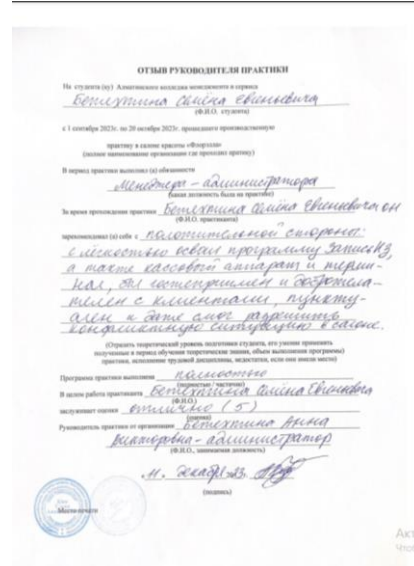 ОТЗЫВ РУКОВОДИТЕЛЯ ПРАКТИКИ
На студента (ку) Алматинского колледжа менеджмента и сервиса
Бетехтина Семёна Евгеньевича
(Ф.И.О. студента)
с 1 сентября 2023г. по 20 октября 2023г. прошедшего производственную
практику в салоне красоты
(полное наименование организации где проходил
В период практики выполнял (а) обязанности
Менеджера - администратора
(какая должность была на практике)
За время прохождения практики Бетехтина Семёна Евгеньевича он
(Ф.И.О. практиканта)
зарекомендовал (а) себя с положительной стороны:
с лёгкостью освоил программу
а также кассовый аппарат и терми-
нал, был гостеприимен и доброжела-
телен с клиентами, пункту-
ален и даже смог разрешить
конфликтную ситуацию в салоне.
(Отразить теоретический уровень подготовки студента, его умение применять
полученные в период обучения теоретические знания, объем выполнения программы)
практики, исполнение трудовой дисциплины, недостатки, если они имели место)
Программа практики выполнена полностью
(полностью / частично)
В целом работа практиканта Бетехтина Семёна Евгеньевича
(Ф.И.О.)
заслуживает оценки отлично (5)
(оценка)
Руководитель практики от организации Бетехтина Анна
Викторовна - администратор
(Ф.И.О., занимаемая должность)
декабря
(подпись)
Место печати